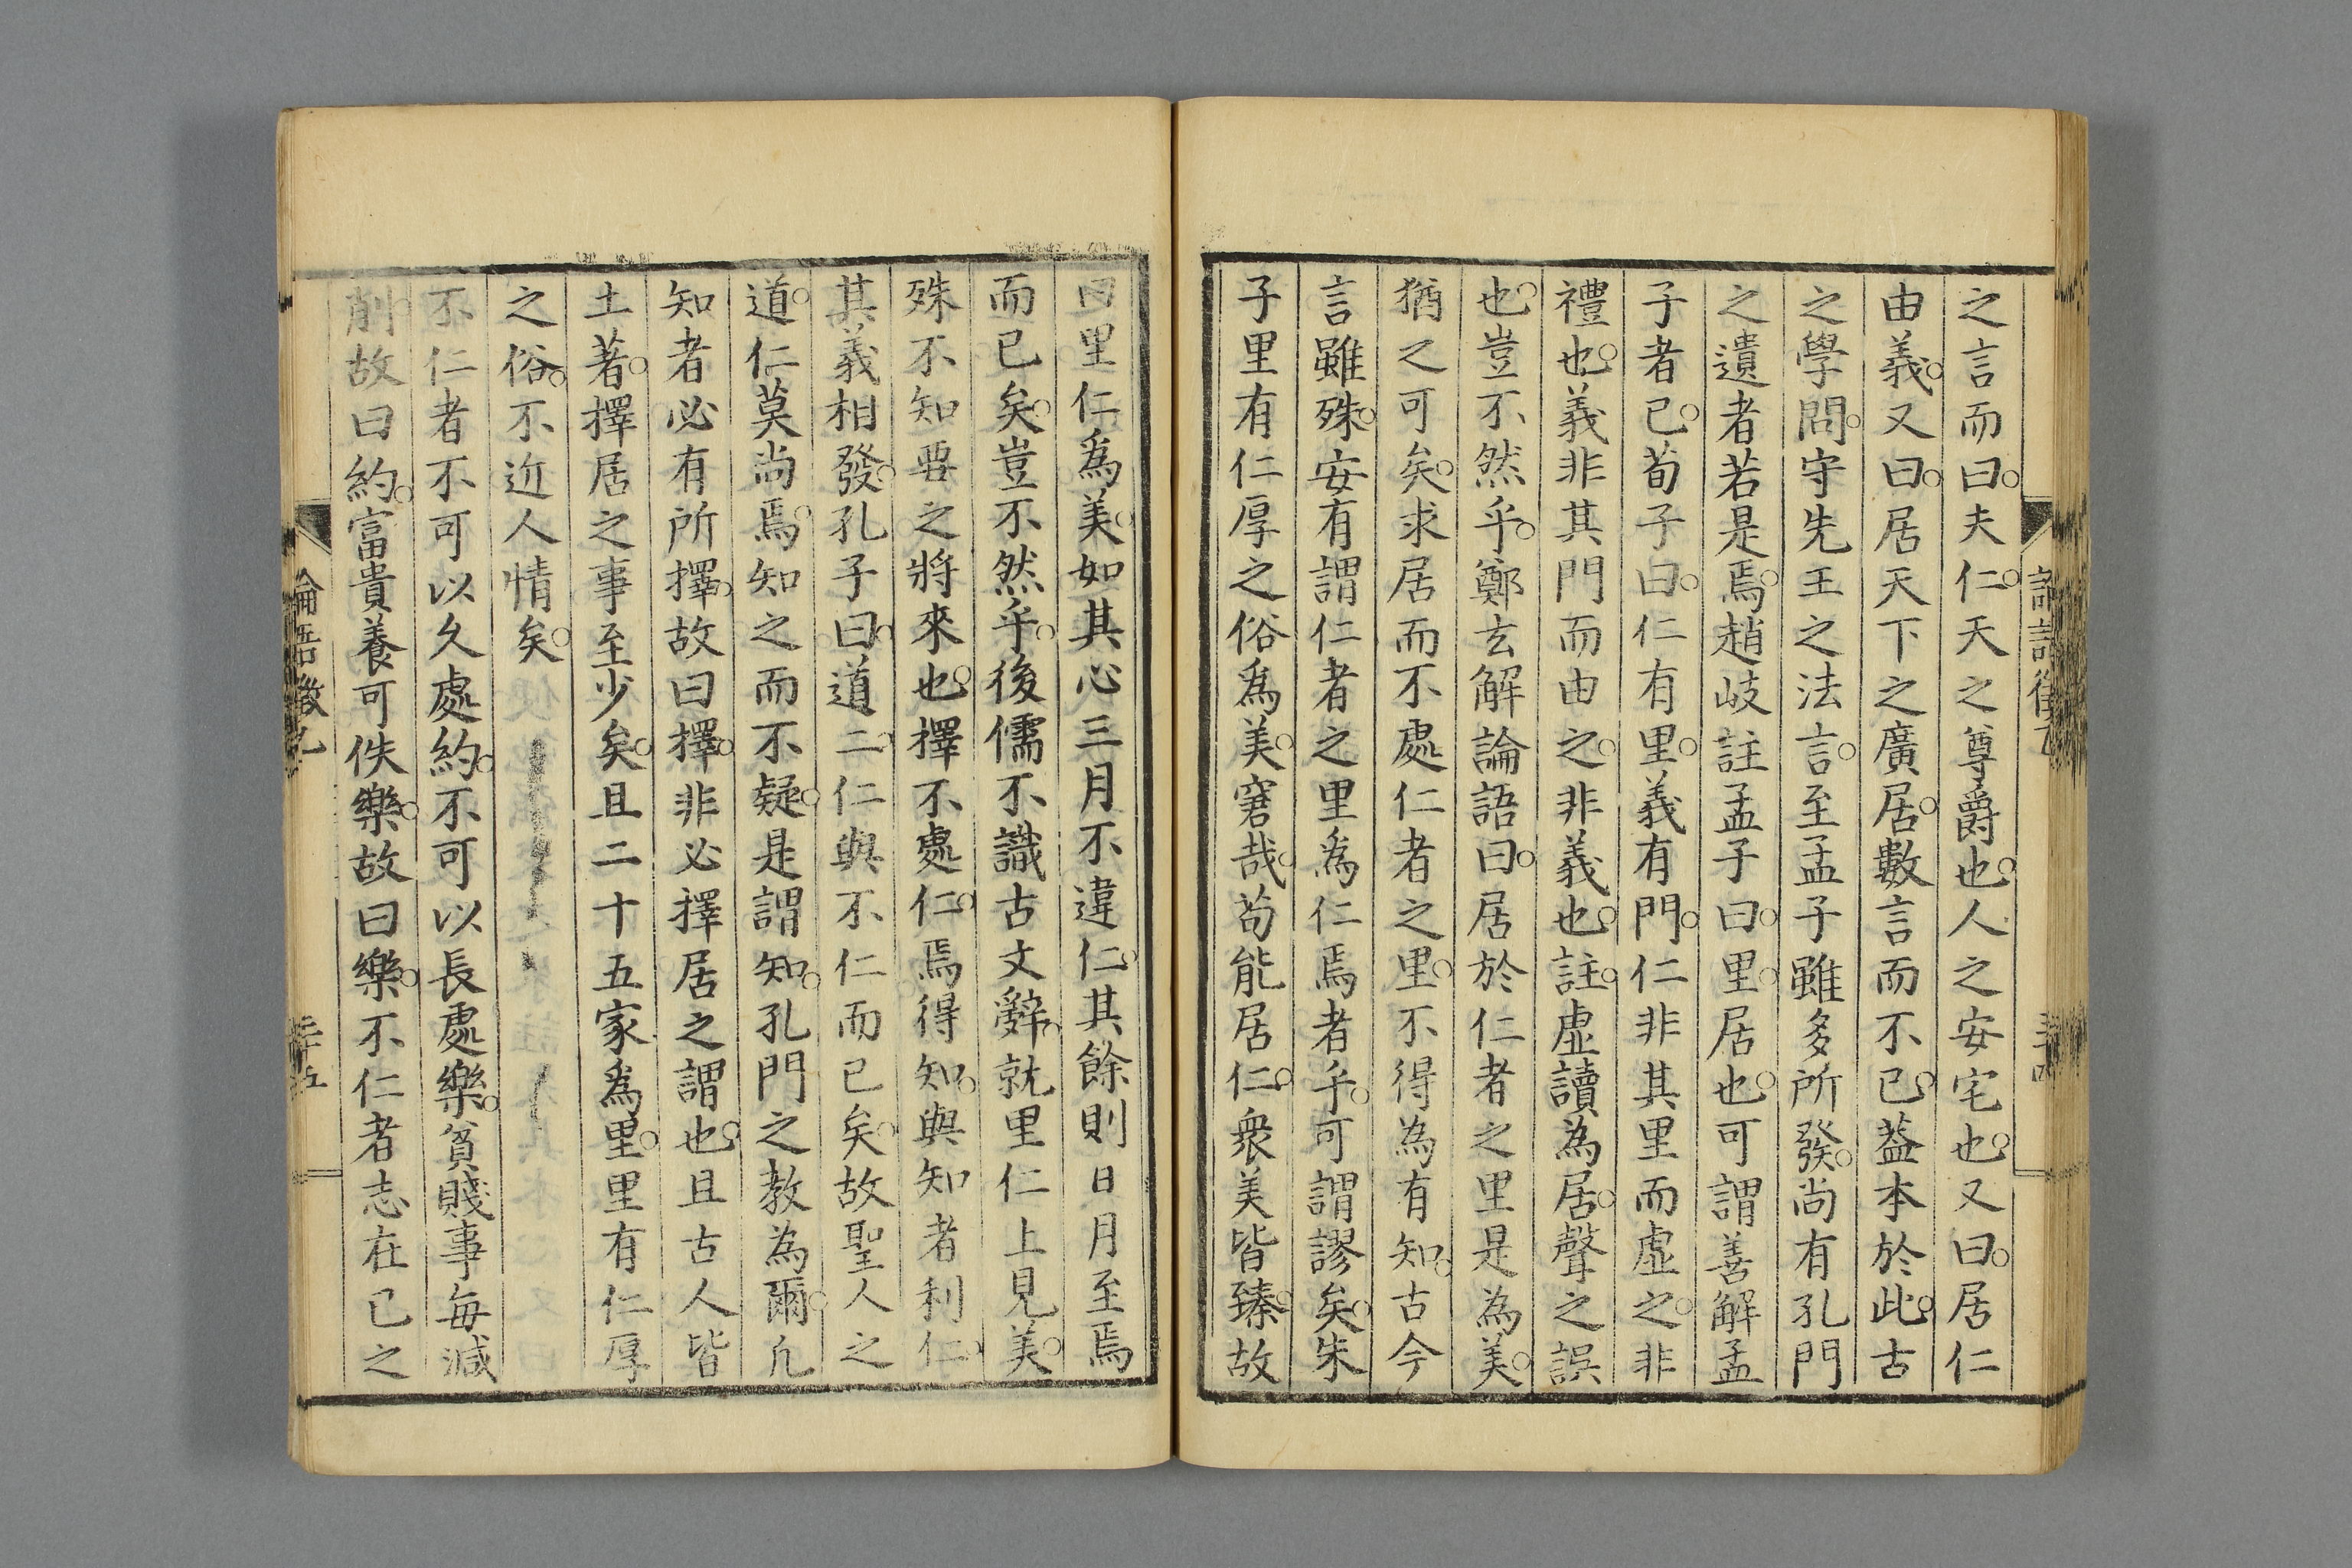 之言而曰。夫仁。天之尊爵也。人之安宅也。又曰。居仁
由義。又曰。居天下之廣居。數言而不已。葢本於此。古
之學問。守先王之法言。至孟子雖多所發。尚有孔門
之遺者若是焉。趙岐註孟子曰。里。居也。可謂善解孟
子者已。荀子曰。仁有里。義有門。仁非其里而虛之。非
禮也。義非其門而由之。非義也。註。虛讀為居。聲之誤
也。豈不然乎。鄭玄解論語曰。居於仁者之里是為美。
猶之可矣。求居而不處仁者之里。不得為有知。古今
言雖殊。安有謂仁者之里爲仁焉者乎。可謂謬矣。朱
子里有仁厚之俗爲美。窘哉。苟能居仁。衆美皆臻。故
曰里仁爲美。如其心三月不違仁。其餘則日月至焉
而已矣。豈不然乎。後儒不識古文辭。就里仁上見美。
殊不知要之將來也。擇不處仁。焉得知。與知者利仁。
其義相發。孔子曰。道二。仁與不仁而已矣。故聖人之
道。仁莫尚焉。知之而不疑。是謂知。孔門之教為爾。凡
知者必有所擇。故曰擇。擇非必擇居之謂也。且古人皆
土著。擇居之事至少矣。且二十五家爲里。里有仁厚
之俗。不近人情矣。
不仁者不可以久處約。不可以長處樂。貧賤事每減
削。故曰約。富貴養可佚樂。故曰樂。不仁者志在已之
論語徵乙